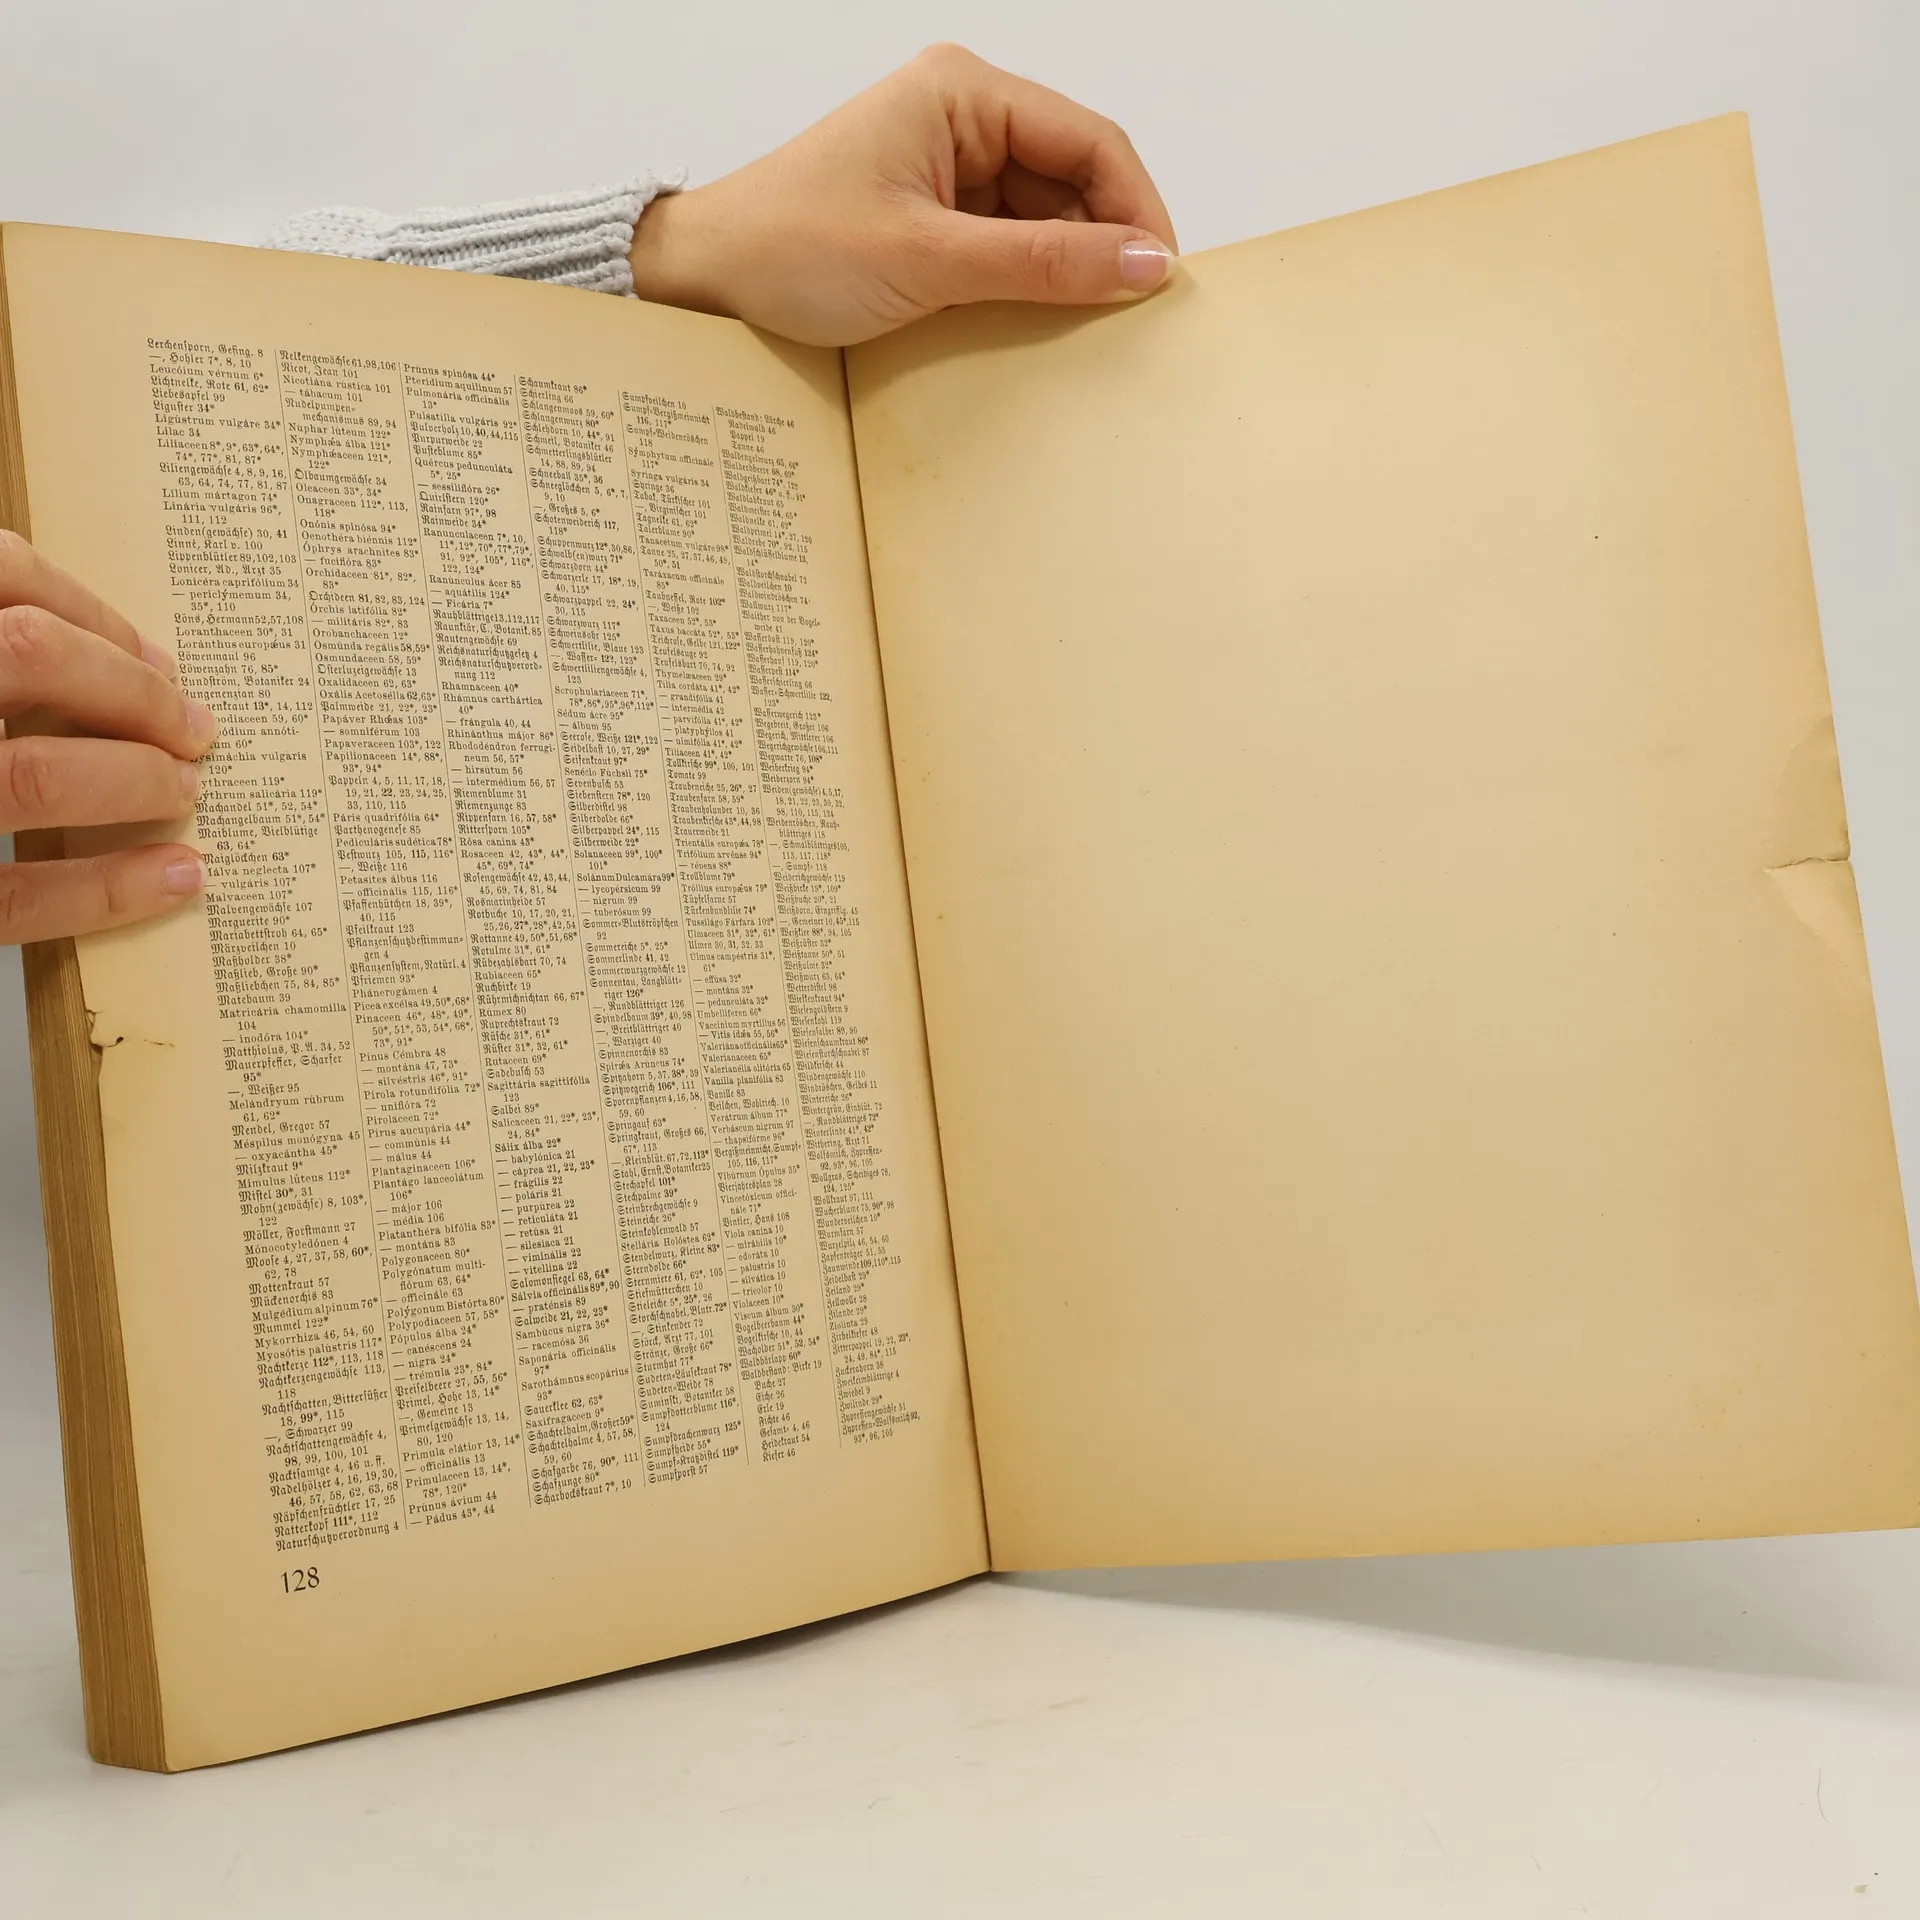 Lerchensporn, Gefing. 8
—, Hohler 7*, 8, 10
Leucóium vérnum 6*
Lichtnelke, Rote 61, 62*
Liebesapfel 99
Liguster 34*
Ligústrum vulgáre 34*
Lilac 34
Liliaceen 8*, 9*, 63*, 64*,
74*, 77*, 81, 87*
Liliengewächse 4, 8, 9, 16,
63, 64, 74, 77, 81, 87
Lílium mártagon 74*
Linária vulgáris 96*,
111, 112
Linden(gewächse) 30, 41
Linné, Karl v. 100
Lippenblütler 89, 102, 103
Lonicer, Ad., Arzt 35
Lonicéra caprifólium 34
— periclýmemum 34,
35*, 110
Löns, Hermann 52, 57, 108
Loranthaceen 30*, 31
Loránthus europǽus 31
Löwenmaul 96
Löwenzahn 76, 85*
Lundström, Botaniker 24
Lungenenzian 80
13*, 14, 112
59, 60*
60*
vulgaris
120*
119*
salicária 119*
Machandel 51*, 52, 54*
Machangelbaum 51*, 54*
Maiblume, Vielblütige
63, 64*
Maiglöckchen 63*
Málva neglecta 107*
— vulgáris 107*
Malvaceen 107*
Malvengewächse 107
Marguerite 90*
Mariabettstroh 64, 65*
Märzveilchen 10
Maßholder 38*
Maßlieb, Große 90*
Maßliebchen 75, 84, 85*
Matebaum 39
Matricária chamomilla
104
— inodóra 104*
Matthiolus, P. A. 34, 52
Mauerpfeffer, Scharfer
95*
—, Weißer 95
Melándryum rúbrum
61, 62*
Mendel, Gregor 57
Méspilus monógyna 45
— oxyacántha 45*
Milzkraut 9*
Mimulus lúteus 112*
Mistel 30*, 31
Mohn(gewächse) 8, 103*,
122
Möller, Forstmann 27
Mónocotyledónen 4
Moose 4, 27, 37, 58, 60*,
62, 78
Mottenkraut 57
Mückenorchis 83
Mulgédium alpinum 76*
Mummel 122*
Mykorrhiza 46, 54, 60
Myosótis palústris 117*
Nachtkerze 112*, 113, 118
Nachtkerzengewächse 113,
118
Nachtschatten, Bittersüßer
18, 99*, 115
—, Schwarzer 99
Nachtschattengewächse 4,
98, 99, 100, 101
Nacktsamige 4, 46 u. ff.
Nadelhölzer 4, 16, 19, 30,
46, 57, 58, 62, 63, 68
Näpfchenfrüchtler 17, 25
Natterkopf 111*, 112
Naturschutzverordnung 4
Nelkengewächse 61, 98, 106
Nicot, Jean 101
Nicotiána rústica 101
— tábacum 101
Nudelpumpen-
mechanismus 89, 94
Nuphar lúteum 122*
Nymphǽa álba 121*
Nymphǽaceen 121*,
122*
Ölbaumgewächse 34
Oleaceen 33*, 34*
Onagraceen 112*, 113,
118*
Onónis spinósa 94*
Oenothéra biénnis 112*
Óphrys arachnites 83*
— fuciflóra 83*
Orchidaceen 81*, 82*,
83*
Orchideen 81, 82, 83, 124
Órchis latifólia 82*
— militáris 82*, 83
Orobanchaceen 12*
Osmúnda regális 58, 59*
Osmundaceen 58, 59*
Osterluzeigewächse 13
Oxalidaceen 62, 63*
Oxális Acetosélla 62, 63*
Palmweide 21, 22*, 23*
Papáver Rhǿas 103*
— somniférum 103
Papaveraceen 103*, 122
Papilionaceen 14*, 88*,
93*, 94*
Pappeln 4, 5, 11, 17, 18,
19, 21, 22, 23, 24, 25,
33, 110, 115
Páris quadrifólia 64*
Parthenogenese 85
Pediculáris sudética 78*
Pestwurz 105, 115, 116*
—, Weiße 116
Petasites álbus 116
— officinális 115, 116*
Pfaffenhütchen 18, 39*,
40, 115
Pfeilkraut 123
Pflanzenschutzbestimmun-
gen 4
Pflanzensystem, Natürl. 4
Pfriemen 93*
Phánerogámen 4
Picea excélsa 49, 50*, 68*
Pinaceen 46*, 48*, 49*,
50*, 51*, 53, 54*, 68*,
73*, 91*
Pinus Cémbra 48
— montána 47, 73*
— silvéstris 46*, 91*
Pirola rotundifólia 72*
— uniflóra 72
Pirolaceen 72*
Pirus aucupária 44*
— commúnis 44
— málus 44
Plantaginaceen 106*
Plantágo lanceolátum
106*
— májor 106
— média 106
Platanthéra bifólia 83*
— montána 83
Polygonaceen 80*
Polygónatum multi-
flórum 63, 64*
— officinále 63
Polýgonum Bistórta 80*
Polypodiaceen 57, 58*
Pópulus álba 24*
— canéscens 24
— nigra 24*
— trémula 23*, 84*
Preiselbeere 27, 55, 56*
Primel, Hohe 13, 14*
—, Gemeine 13
Primelgewächse 13, 14,
80, 120
Primula elátior 13, 14*
— officinális 13
Primulaceen 13, 14*,
78*, 120*
Prúnus ávium 44
— Pádus 43*, 44
Prúnus spinósa 44*
Pteridium aquilinum 57
Pulmonária officinális
13*
Pulsatilla vulgáris 92*
Pulverholz 10, 40, 44, 115
Purpurweide 22
Pusteblume 85*
Quércus pedunculáta
5*, 25*
— sessiliflóra 26*
Quirlstern 120*
Rainfarn 97*, 98
Rainweide 34*
Ranunculaceen 7*, 10,
11*, 12*, 70*, 77*, 79*,
91, 92*, 105*, 116*,
122, 124*
Ranúnculus ácer 85
— aquátilis 124*
— Ficária 7*
Rauhblättrige 13, 112, 117
Raunkiär, C., Botanik. 85
Rautengewächse 69
Reichsnaturschutzgesetz 4
Reichsnaturschutzverord-
nung 112
Rhamnaceen 40*
Rhámnus carthártica
40*
— frángula 40, 44
Rhinánthus májor 86*
Rhododéndron ferrugi-
neum 56, 57*
— hirsútum 56
— intermédium 56, 57
Riemenblume 31
Riemenzunge 83
Rippenfarn 16, 57, 58*
Rittersporn 105*
Rósa canina 43*
Rosaceen 42, 43*, 44*,
45*, 69*, 74*
Rosengewächse 42, 43, 44,
45, 69, 74, 81, 84
Rosmarinheide 57
Rotbuche 10, 17, 20, 21,
25, 26, 27*, 28*, 42, 54
Rottanne 49, 50*, 51, 68*
Rotulme 31*, 61*
Rübezahlsbart 70, 74
Rubiaceen 65*
Ruchbirke 19
Rührmichnichtan 66, 67*
Rúmex 80
Ruprechtskraut 72
Rüsche 31*, 61*
Rüster 31*, 32, 61*
Rutaceen 69*
Sadebusch 53
Sagittária sagittifólia
123
Salbei 89*
Salicaceen 21, 22*, 23*,
24, 84*
Sálix álba 22*
— babylónica 21
— cáprea 21, 22, 23*
— frágilis 22
— poláris 21
— purpúrea 22
— reticuláta 21
— retúsa 21
— silesiaca 21
— viminális 22
— vitellina 22
Salomonsiegel 63, 64*
Sálvia officinális 89*, 90
— praténsis 89
Salweide 21, 22, 23*
Sambúcus nigra 36*
— racemósa 36
Saponária officinális
97*
Sarothámnus scopárius
93*
Sauerklee 62, 63*
Saxifragaceen 9*
Schachtelhalm, Großer 59*
Schachtelhalme 4, 57, 58,
59, 60
Schafgarbe 76, 90*, 111
Schafzunge 80*
Scharbockskraut 7*, 10
Schaumkraut 86*
Schierling 66
Schlangenmoos 59, 60*
Schlangenwurz 80*
Schlehdorn 10, 44*, 91
Schmeil, Botaniker 46
Schmetterlingsblütler
14, 88, 89, 94
Schneeball 35*, 36
Schneeglöckchen 5, 6*, 7,
9, 10
—, Großes 5, 6*
Schotenweiderich 117,
118*
Schuppenwurz 12*, 30, 86,
Schwalb(en)wurz 71*
Schwarzdorn 44*
Schwarzerle 17, 18*, 19,
40, 115*
Schwarzpappel 22, 24*,
30, 115
Schwarzwurz 117*
Schweinsohr 125*
Schwertlilie, Blaue 123
—, Wasser- 122, 123*
Schwertliliengewächse 4,
123
Scrophulariaceen 71*,
78*, 86*, 95*, 96*, 112*
Sédum ácre 95*
— álbum 95
Seerose, Weiße 121*, 122
Seidelbast 10, 27, 29*
Seifenkraut 97*
Senécio Fúchsii 75*
Sevenbusch 53
Siebenstern 78*, 120
Silberdistel 98
Silberdolde 66*
Silberpappel 24*, 115
Silberweide 22*
Solanaceen 99*, 100*
101*
Solánum Dulcamára 99*
— lycopérsicum 99
— nigrum 99
— tuberósum 99
Sommer-Blutströpfchen
92
Sommereiche 5*, 25*
Sommerlinde 41, 42
Sommerwurzgewächse 12
Sonnentau, Langblätt-
riger 126*
—, Rundblättriger 126
Spindelbaum 39*, 40, 98
—, Breitblättriger 40
—, Warziger 40
Spinnenorchis 83
Spirǽa Arúncus 74*
Spitzahorn 5, 37, 38*, 39
Spitzwegerich 106*, 111
Sporenpflanzen 4, 16, 58,
59, 60
Springauf 63*
Springkraut, Großes 66,
67*, 113
—, Kleinblüt. 67, 72, 113*
Stahl, Ernst, Botaniker 25
Stechapfel 101*
Stechpalme 39*
Steinbrechgewächse 9
Steineiche 26*
Steinkohlenwald 57
Stellária Holóstea 62*
Stendelwurz, Kleine 83*
Sterndolde 66*
Sternmiere 61, 62*, 105
Stiefmütterchen 10
Stieleiche 5*, 25*, 26
Storchschnabel, Blutr. 72*
—, Stinkender 72
Störck, Arzt 77, 101
Stränze, Große 66*
Sturmhut 77*
Sudeten-Läusekraut 78*
Sudeten-Weide 78
Suminski, Botaniker 58
Sumpfdotterblume 116*,
124
Sumpfdrachenwurz 125*
Sumpfheide 55*
Sumpf-Kratzdistel 119*
Sumpfporst 57
Sumpfveilchen 10
Sumpf-Vergißmeinnicht
116, 117*
Sumpf-Weidenröschen
118
Sýmphytum officinále
117*
Syringa vulgáris 34
Syringe 36
Tabak, Türkischer 101
—, Virginischer 101
Tagnelke 61, 62*
Talerblume 90*
Tanacétum vulgáre 98*
Tanne 25, 27, 37, 46, 49,
50*, 51
Taráxacum officinále
85*
Taubnessel, Rote 102*
—, Weiße 102
Taxaceen 52*, 53*
Táxus baccáta 52*, 53*
Teichrose, Gelbe 121, 122*
Teufelsauge 92
Teufelsbart 70, 74, 92
Thymelæaceen 29*
Tilia cordáta 41*, 42*
— grandifólia 41
— intermédia 42
— parvifólia 41*, 42*
— platyphýllos 41
— ulmifólia 41*, 42*
Tiliaceen 41*, 42*
Tollkirsche 99*, 100, 101
Tomate 99
Traubeneiche 25, 26*, 27
Traubenfarn 58, 59*
Traubenholunder 10, 36
Traubenkirsche 43*, 44, 98
Trauerweide 21
Trientális europǽa 78*
Trifólium arvénse 94*
— répens 88*
Trollblume 79*
Tróllius europǽus 79*
Tüpfelfarne 57
Türkenbundlilie 74*
Tussilágo Fárfara 102*
Ulmaceen 31*, 32*, 61*
Ulmen 30, 31, 32, 33
Ulmus campéstris 31*,
61*
— effúsa 32*
— montána 32*
— pedunculáta 32*
Umbelliferen 66*
Vaccinium myrtillus 56
— Vitis idǽa 55, 56*
Valeriána officinális 65*
Valerianaceen 65*
Valerianélla olitória 65
Vanilla planifólia 83
Vanille 83
Veilchen, Wohlriech. 10
Verátrum álbum 77*
Verbáscum nigrum 97
— thapsifórme 96*
Vergißmeinnicht, Sumpf-
105, 116, 117*
Vibúrnum Ópulus 35*
Vierjahresplan 28
Vincetóxicum offici-
nále 71*
Vintler, Hans 108
Viola canina 10
— mirábilis 10*
— odoráta 10
— palústris 10
— silvática 10
— tricolor 10
Violaceen 10*
Viscum álbum 30*
Vogelbeerbaum 44*
Vogelkirsche 10, 44
Wacholder 51*, 52, 54*
Waldbärlapp 60*
Waldbestand: Birke 19
Buche 27
Eiche 26
Erle 19
Fichte 46
Gesamt- 4, 46
Heidekraut 54
Kiefer 46
Waldbestand: Lärche 46
Nadelwald 46
Pappel 19
Tanne 46
Waldengelwurz 65, 66*
Walderdbeere 68, 69*
Waldgeißbart 74*, 122
Waldkiefer 46* u. ff., 91*
Waldlabkraut 65
Waldmeister 64, 65*
Waldnelke 61, 62*
Waldprimel 14*, 27, 120
Waldrebe 70*, 92, 115
Waldschlüsselblume 13,
14*
Waldstorchschnabel 72
Waldveilchen 10
Waldwindröschen 74
Wallwurz 117*
Walther von der Vogel-
weide 41
Wasserdost 119, 120*
Wasserhahnenfuß 124*
Wasserhanf 119, 120*
Wasserpest 114*
Wasserschierling 66
Wasser-Schwertlilie 122,
123*
Wasserwegerich 123*
Wegebreit, Großer 106
Wegerich, Mittlerer 106
Wegerichgewächse 106, 111
Wegwarte 76, 108*
Weiberkrieg 94*
Weiberzorn 94*
Weiden(gewächse) 4, 5, 17,
18, 21, 22, 23, 30, 32,
98, 110, 115, 124
Weidenröschen, Rauh-
blättriges 118
—, Schmalblättriges 105,
113, 117, 118*
—, Sumpf- 118
Weiderichgewächse 119
Weißbirke 19*, 109*
Weißbuche 20*, 21
Weißdorn, Eingriffig. 45
—, Gemeiner 10, 45*, 115
Weißklee 88*, 94, 105
Weißrüster 32*
Weißtanne 50*, 51
Weißulme 32*
Weißwurz 63, 64*
Wetterdistel 98
Wiesenkohl 119
Wiesensalbei 89, 90
Wiesenschaumkraut 86*
Wiesenstorchschnabel 87
Wildkirsche 44
Windengewächse 110
Windröschen, Gelbes 11
Wintereiche 26*
Wintergrün, Einblüt. 72
—, Rundblättriges 72*
Winterlinde 41*, 42*
Withering, Arzt 71
Wolfsmilch, Zypressen-
92, 93*, 96, 105
Wollgras, Scheidiges 78,
124, 125*
Wollkraut 97, 111
Wucherblume 75, 90*, 98
Wunderveilchen 10*
Wurmfarn 57
Wurzelpilz 46, 54, 60
Zapfenträger 51, 53
Zaunwinde 109, 110*, 115
Zeidelbast 29*
Zeiland 29*
Zellwolle 28
Zilande 29*
Ziolinta 29
Zirbelkiefer 48
Zitterpappel 19, 22, 23*,
24, 49, 84*, 115
Zuckerahorn 38
Zweikeimblättrige 4
Zwiebel 9
Zwilinde 29*
Zypressengewächse 51
Zypressen-Wolfsmilch 92,
93*, 96, 105
128